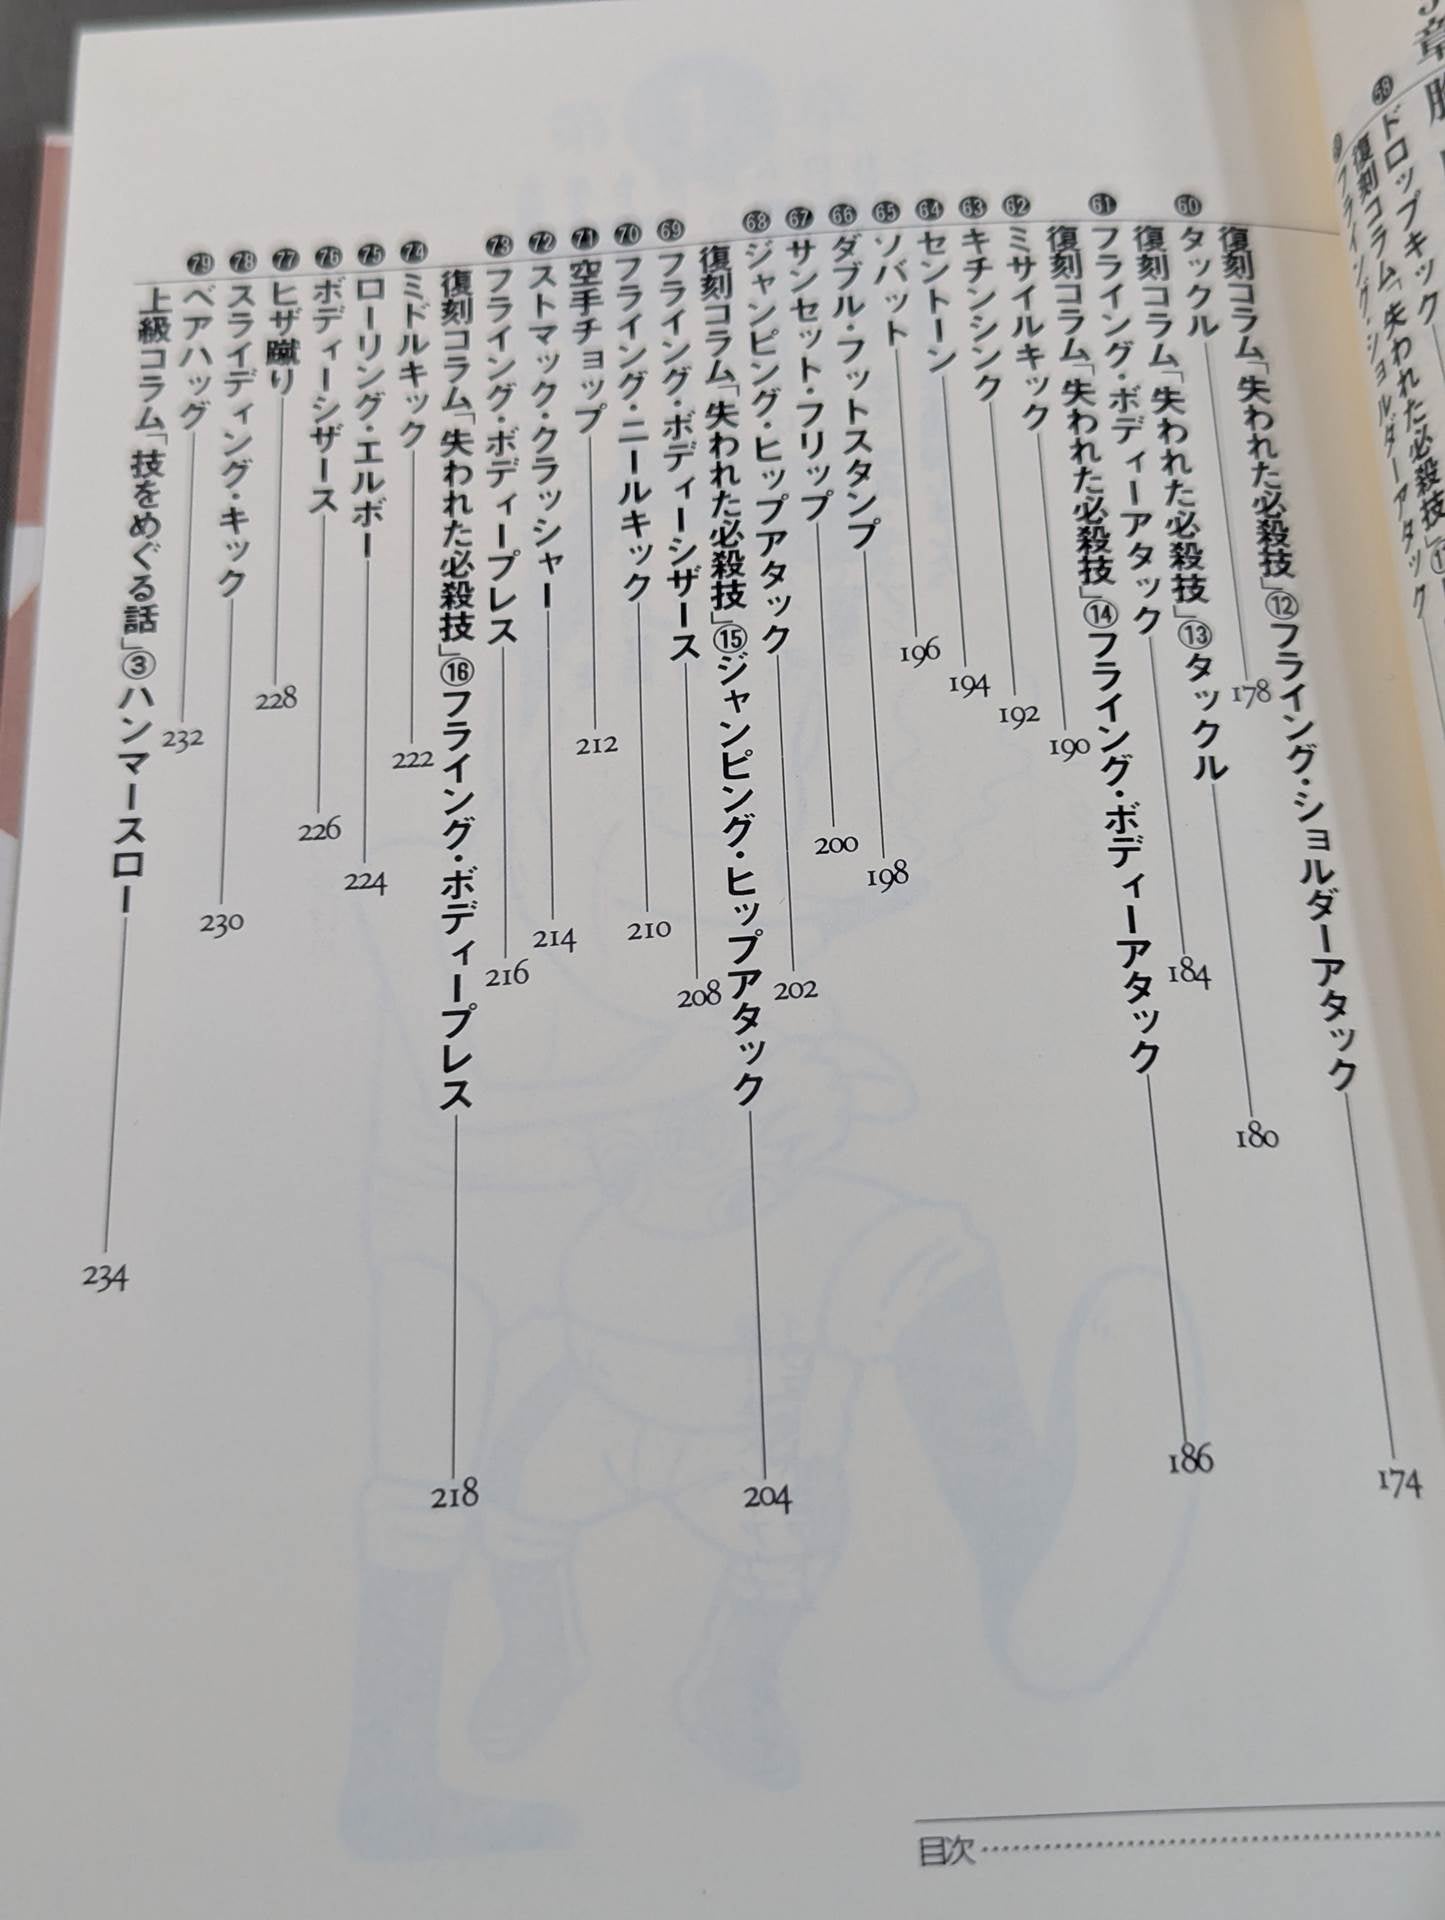 章
58 ドロップキック
復刻コラム「失われた必殺技」
フライング・ショルダーアタック
復刻コラム「失われた必殺技」⑫フライング・ショルダーアタック 174
60 タックル 178
復刻コラム「失われた必殺技」⑬タックル 180
61 フライング・ボディーアタック 184
復刻コラム「失われた必殺技」⑭フライング・ボディーアタック 186
62 ミサイルキック 190
63 キチンシンク 192
64 セントーン 194
65 ソバット 196
66 ダブル・フットスタンプ 198
67 サンセット・フリップ 200
68 ジャンピング・ヒップアタック 202
復刻コラム「失われた必殺技」⑮ジャンピング・ヒップアタック 204
69 フライング・ボディーシザース 208
70 フライング・ニールキック 210
71 空手チョップ 212
72 ストマック・クラッシャー 214
73 フライング・ボディープレス 216
復刻コラム「失われた必殺技」⑯フライング・ボディープレス 218
74 ミドルキック 222
75 ローリング・エルボー 224
76 ボディーシザース 226
77 ヒザ蹴り 228
78 スライディング・キック 230
79 ベアハッグ 232
上級コラム「技をめぐる話」③ハンマースロー 234
目次